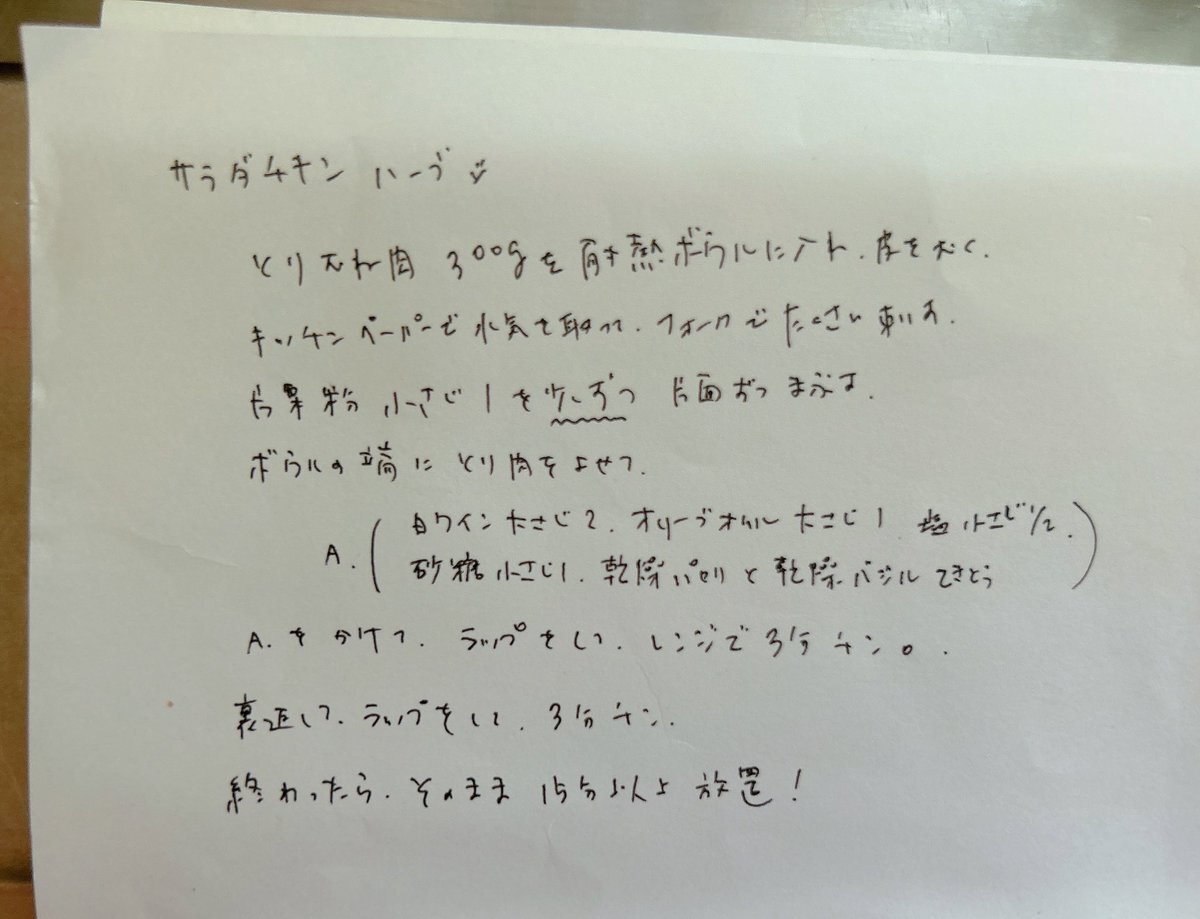 サラダチキン ハーブ
とりむね肉 300gを耐熱ボウルに入れ、皮をむく.
キッチンペーパーで水気を取って、フォークでたくさん刺す.
片栗粉 小さじ1を少しずつ 片面ずつまぶす.
ボウルの端にとり肉をよせて.
A. (白ワイン大さじ2、オリーブオイル 大さじ1 塩小さじ1/2.
砂糖小さじ1、乾燥パセリと乾燥バジルてきとう)
A.をかけて、ラップをして、レンジで3分チン。.
裏返して、ラップをして、3分チン.
終わったら、そのまま15分以上放置!